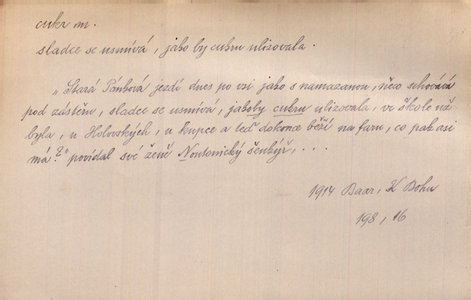 cukr m.
sladce se usmívá, jako by cukru ulizovala.
„Stará Pánková jezdí dnes po vsi jako s namazanou, něco schovává
pod zástěru, sladce se usmívá, jakoby cukru ulizovala, ve škole už
byla, u Holovských, u kupce a teď dokonce běží na faru, co pak asi
má?" povídal své ženě Novotnický šenkýř, . . .
1914 Baar, K Bohu
198, 16